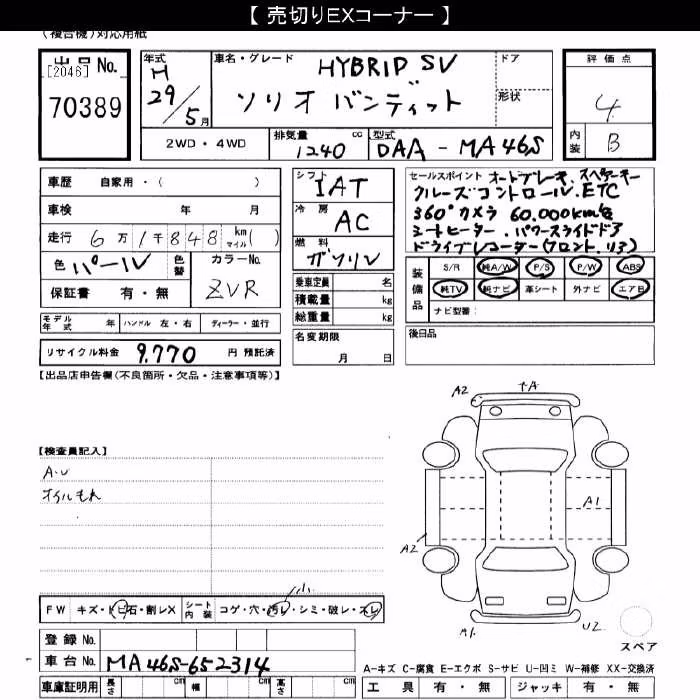 【 売切りEXコーナー 】
(複合機)対応用紙
出品 [2046] No. 70389
年式 H 29/5月
車名・グレード HYBRID SV
ソリオ バンディット
ドア
形状
評価点 4
内装 B
2WD・4WD
排気量 1240 cc
型式 DAA - MA46S
車歴 自家用・( )
車検 年 月
走行 6万1千848 km マイル( )
色 パール 色替 カラーNo. ZVR
保証書 有・無
モデル年式 年 ハンドル 左・右 ディーラー・並行
リサイクル料金 9,770 円 預託済
シフト IAT
冷房 AC
燃料 ガソリン
乗車定員 名
積載量 kg
総重量 kg
名変期限 月 日
セールスポイント オートブレーキ、スペアキー
クルーズコントロール、ETC
360°カメラ 60,000km台
シートヒーター・パワースライドドア
ドライブレコーダー(フロント、リア)
装備品 S/R 純A/W P/S P/W ABS
純TV 純ナビ 革シート 外ナビ エアB
ナビ型番:
後日品
【出品店申告欄(不良箇所・欠品・注意事項等)】
【検査員記入】
A・U
オイルもれ
A2 ↑A
A1
A2
A1 U2
スペア
小
FW キズ・トビ石・割レX シート内装 コゲ・穴・汚レ・シミ・破レ・スレ
登録 No.
車台 No. MA46S-652314
車庫証明用 長さ cm 幅 cm 高さ cm
A-キズ C-腐食 E-エクボ S-サビ U-凹ミ W-補修 XX-交換済
工具 有・無 ジャッキ 有・無